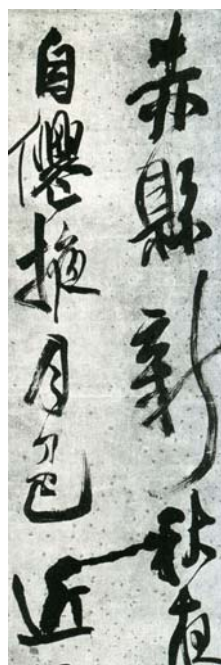 赤縣新秋夜
自僊掖月色近